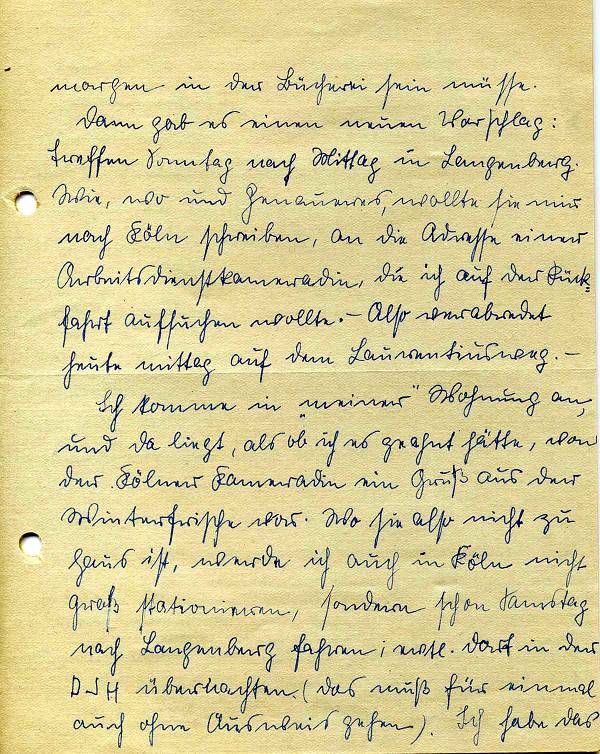 morgen in der Bücherei sein müsse.
Dann gab es einen neuen Vorschlag:
treffen Sonntag nach Mittag in Langenberg.
Wie, wo und Genaueres, wollte sie mir
nach Köln schreiben, an die Adresse einer
Arbeitsdienstkameradin, die ich auf der Rück=
fahrt aufsuchen wollte. – Also verabredet
heute mittag auf dem Laurentiusweg. –
Ich komme in "meiner" Wohnung an,
und da liegt, als ob ich es geahnt hätte, von
der Kölner Kameradin ein Gruß aus der
Winterfrische vor. Wo sie also nicht zu
haus ist, werde ich auch in Köln nicht
groß stationieren, sondern schon Samstag
nach Langenberg fahren; evtl. dort in der
DJH übernachten. (das muß für einmal
auch ohne Ausweis gehen). Ich habe das